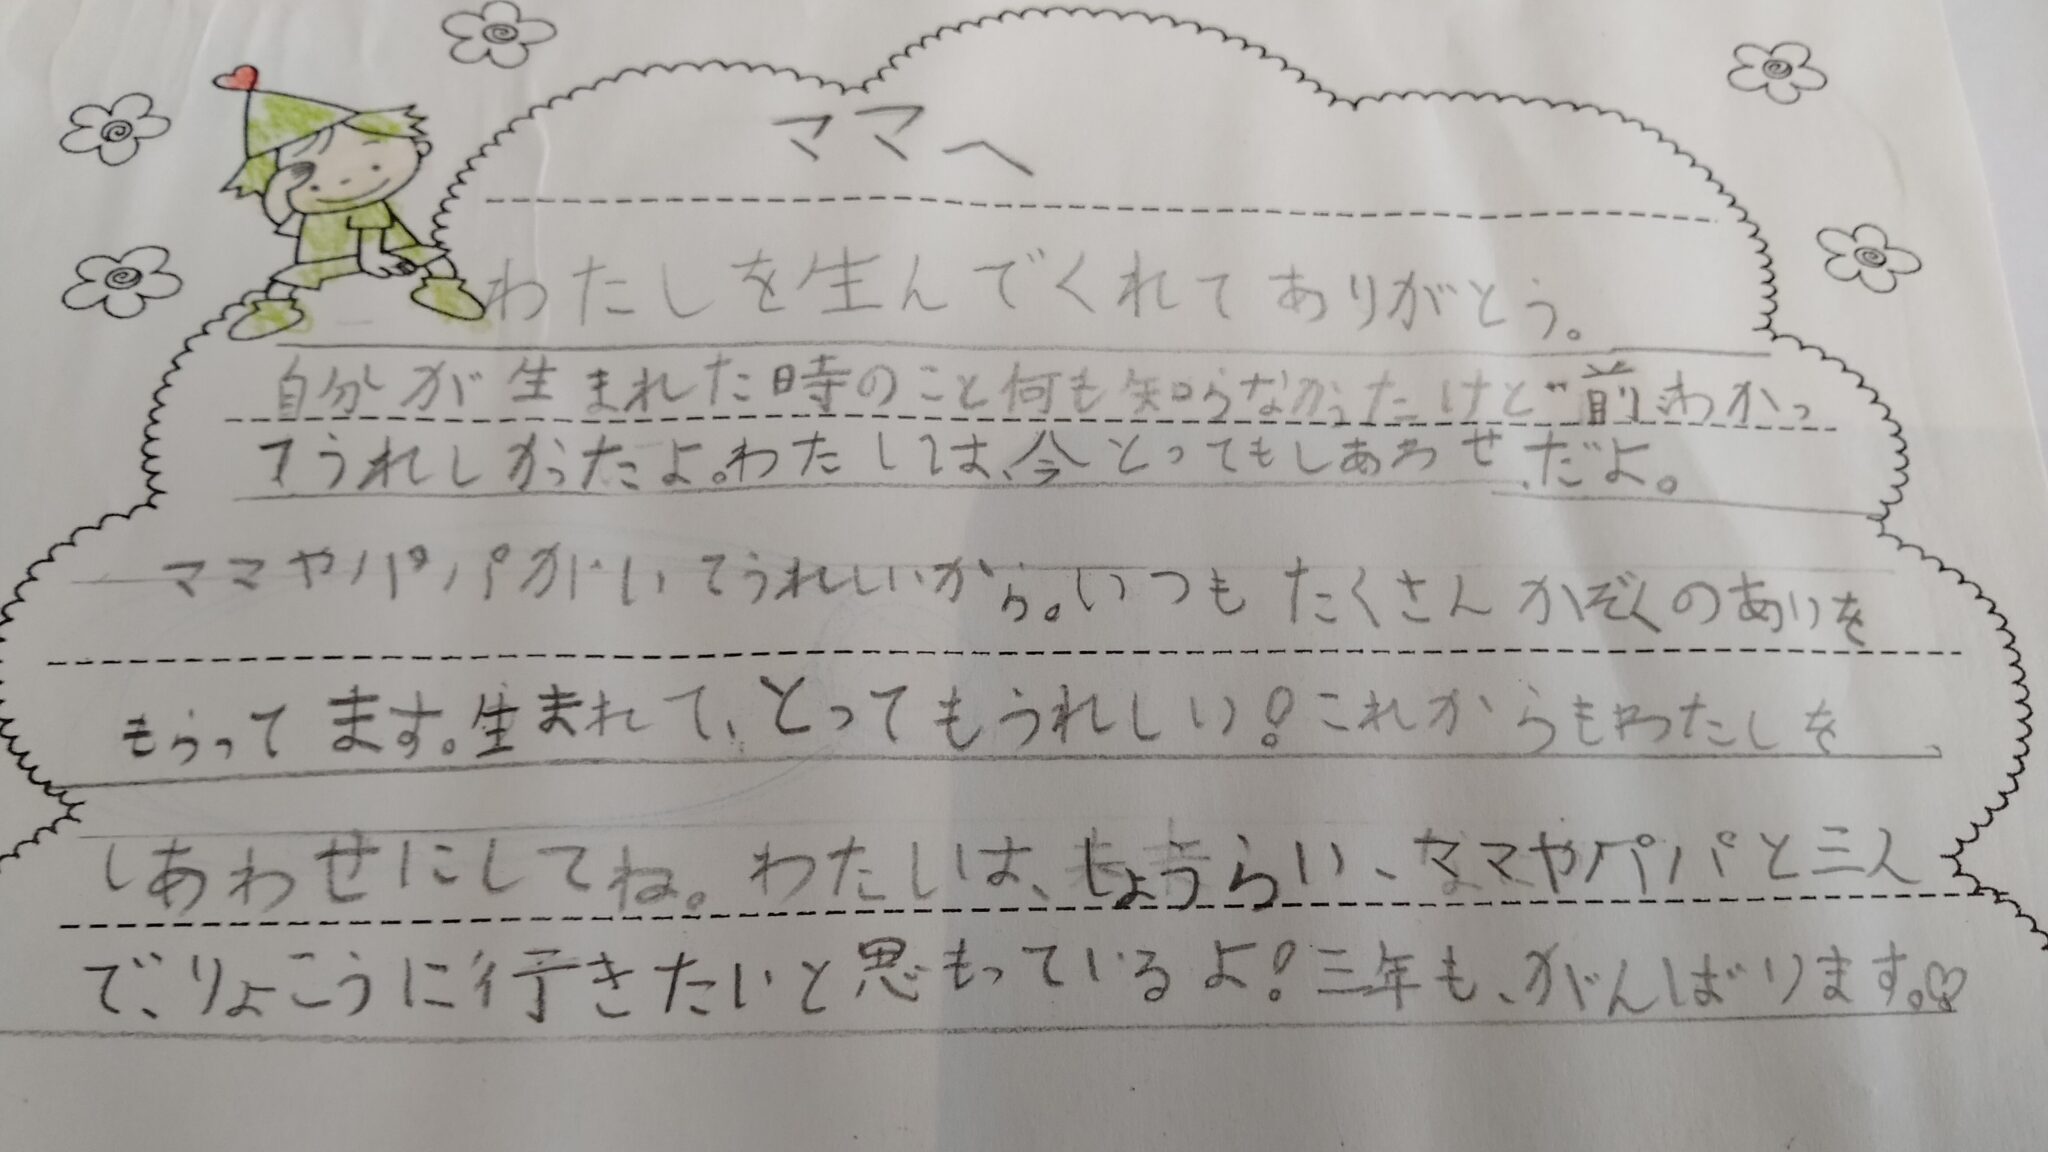 ママへ
わたしを生んでくれてありがとう。
自分が生まれた時のこと何も知らなかったけど前わかっ
てうれしかったよ。わたしは、今とってもしあわせだよ。
ママやパパがいてうれしいから。いつもたくさんかぞくのあいを
もらってます。生まれて、とってもうれしい!これからもわたしを
しあわせにしてね。わたしは、しょうらい、ママやパパと三人
で、りょこうに行きたいと思もっているよ!三年も、がんばります。♡